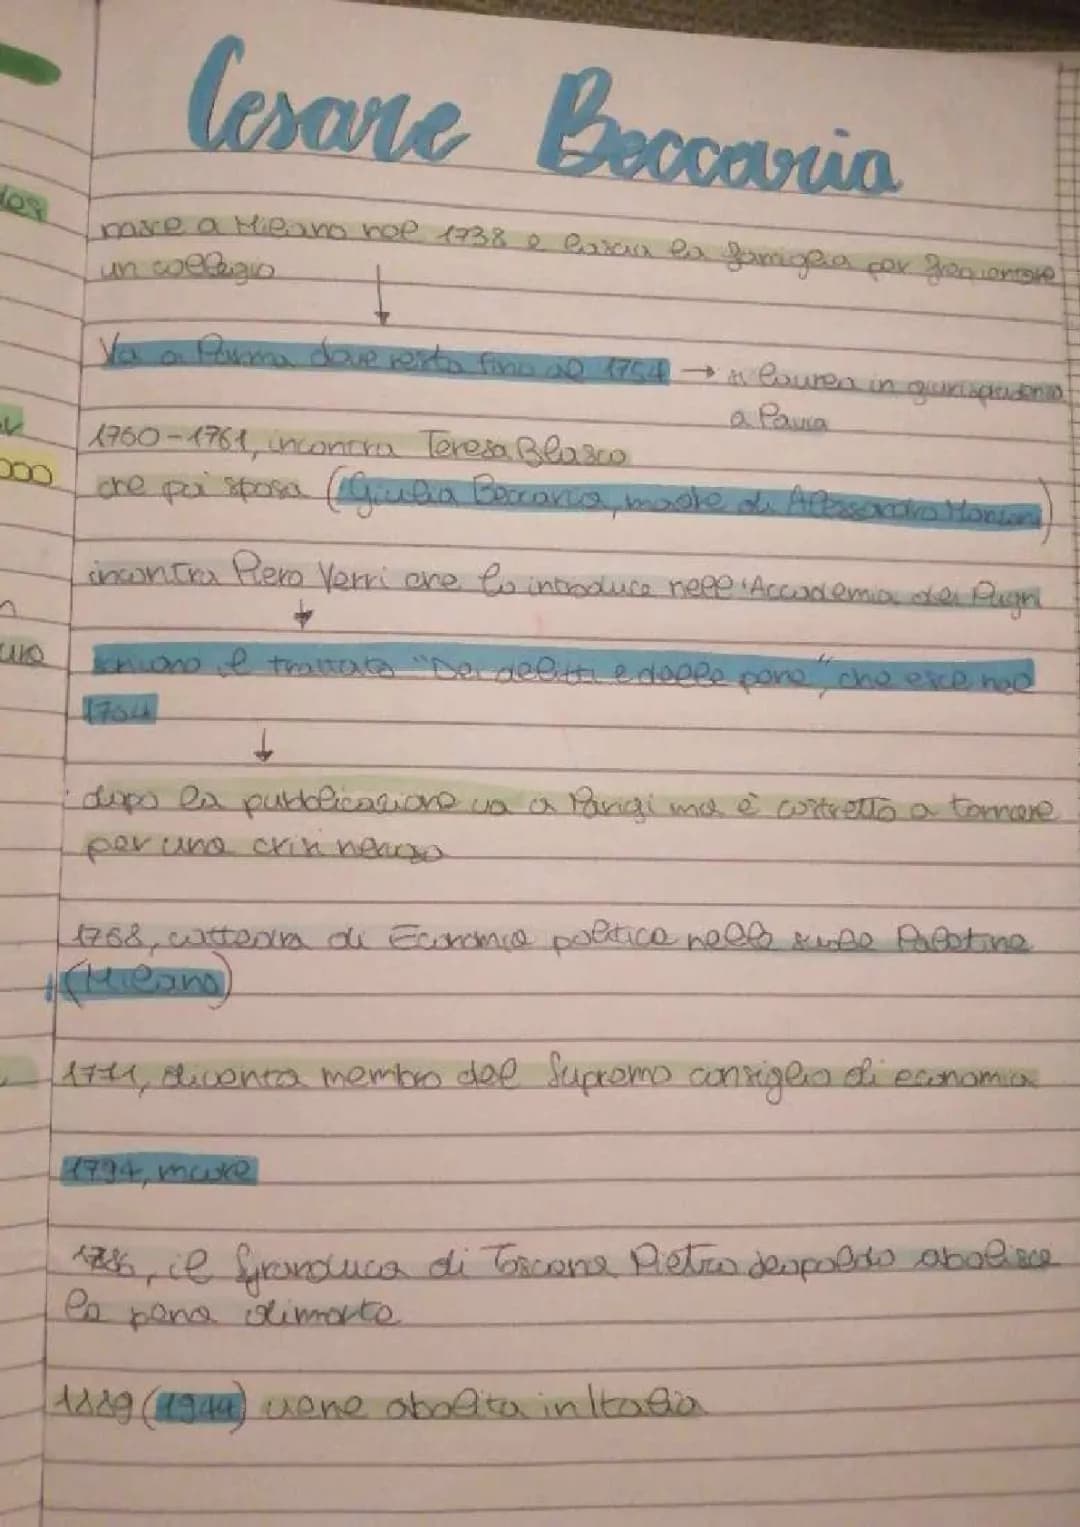 Cesare Beccaria
nasce a Milano nel 1738 e lascia la famiglia per frequentare
un collegio
Va a Parma dove resta fino al 1754 → si laurea in giurisprudenza
a Pavia
1760-1761, incontra Teresa Blasco
che poi sposa (Giulia Beccaria, madre di Alessandro Manzoni)
incontra Piero Verri che lo introduce nell'Accademia dei Pugni
↓
scrivono il trattato "Dei delitti e delle pene", che esce nel
1764
↓
dopo la pubblicazione va a Parigi ma è costretto a tornare
per una crisi nervosa
1768, cattedra di Economia politica nelle scuole Palatine
(Milano)
1771, diventa membro del Supremo consiglio di economia
1794, muore
1786, il granduca di Toscana Pietro Leopoldo abolisce
la pena di morte
1889 (1944) viene abolita in Italia